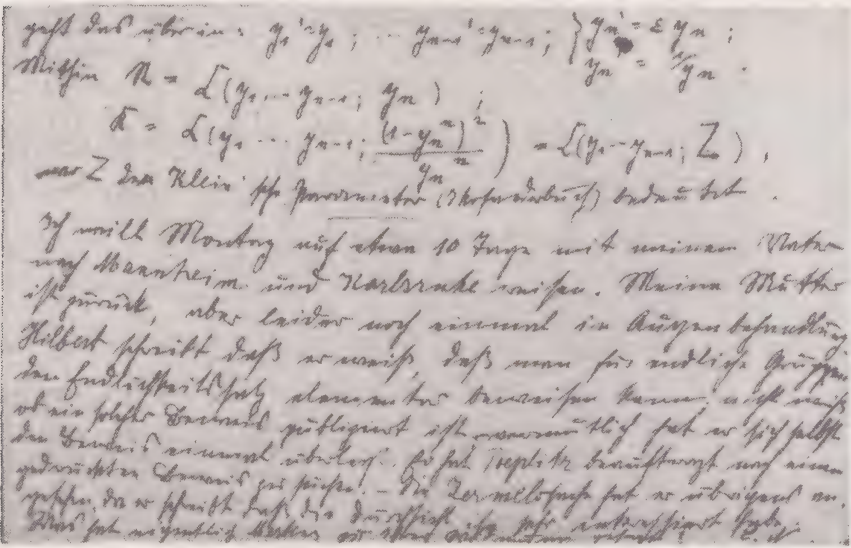 geht das über in: y₁' = y₁; ... yₙ₋₁' = yₙ₋₁; { yₙ' = ε yₙ; yₙ' = 1/yₙ .
Mithin R = L(y₁, ... yₙ₋₁; yₙ) ;
K = L(y₁ ... yₙ₋₁; (1-yₙⁿ)²/yₙⁿ) = L(y₁ ... yₙ₋₁; Z) ,
wo Z den Klein'sche Parameter (Ikosaederbuch) bedeutet .
Ich will Montag auf etwa 10 Tage mit meinem Vater
nach Mannheim und Karlsruhe reisen. Meine Mutter
ist zurück, aber leider noch einmal in Augenbehandlung
Hilbert schreibt daß er weiß, daß man für endliche Gruppen
den Endlichkeitssatz elementar beweisen kann, nicht weiß
ob ein solcher Beweis publiziert ist vermutlich hat er sich selbst
den Beweis einmal überlegt. Er hat Toeplitz beauftragt nach einem
gedruckten Beweis zu suchen. – Die Zermelosache hat er übrigens an-
gesehen, da er schreibt daß die Durchsicht ihn sehr interessiert habe.
Was hat eigentlich